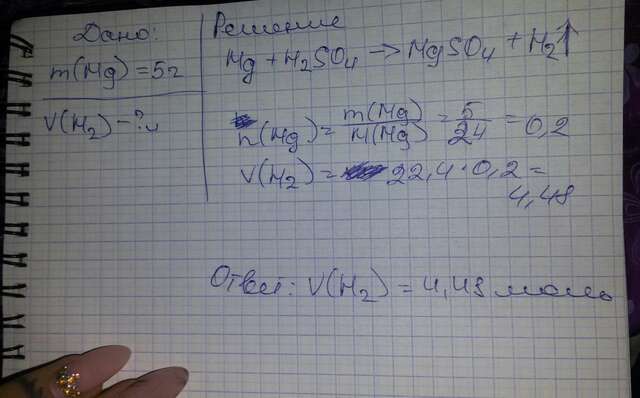 Дано:
m(Mg) = 5г
V(H₂) - ?л
Решение
Mg + H₂SO₄ → MgSO₄ + H₂↑
n(Mg) = m(Mg)/M(Mg) = 5/24 = 0,2
V(H₂) = 22,4 · 0,2 =
4,48
Ответ: V(H₂) = 4,48 моль